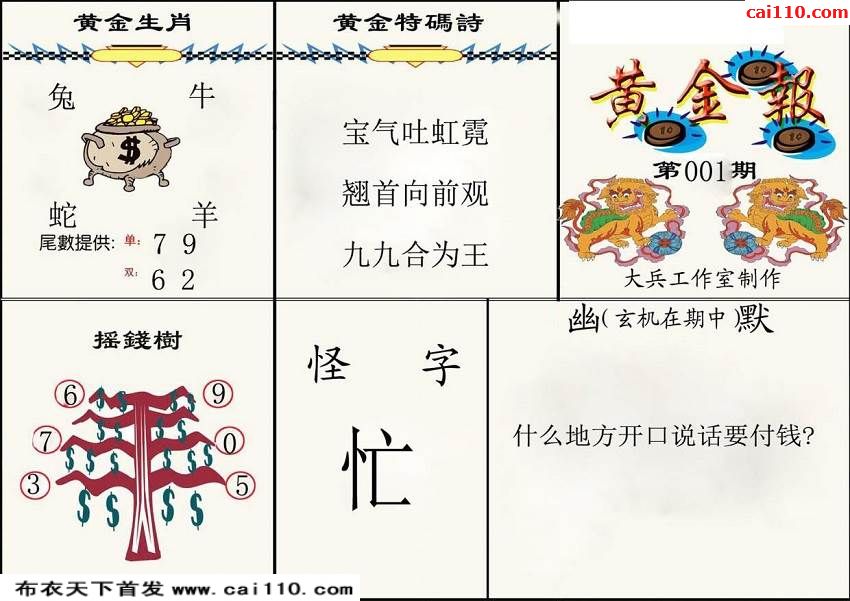 cai110.com
黄金生肖
兔 牛
$
蛇 羊
尾數提供: 单: 7 9
双: 6 2
黄金特碼詩
宝气吐虹霓
翘首向前观
九九合为王
黄金報
第001期
大兵工作室制作
摇錢樹
6 9
7 0
3 5
$ $ $ $
$ $ $ $
$ $ $ $
$ $ $ $
怪 字
忙
幽(玄机在期中)默
什么地方开口说话要付钱?
布衣天下首发 www.cai110.com